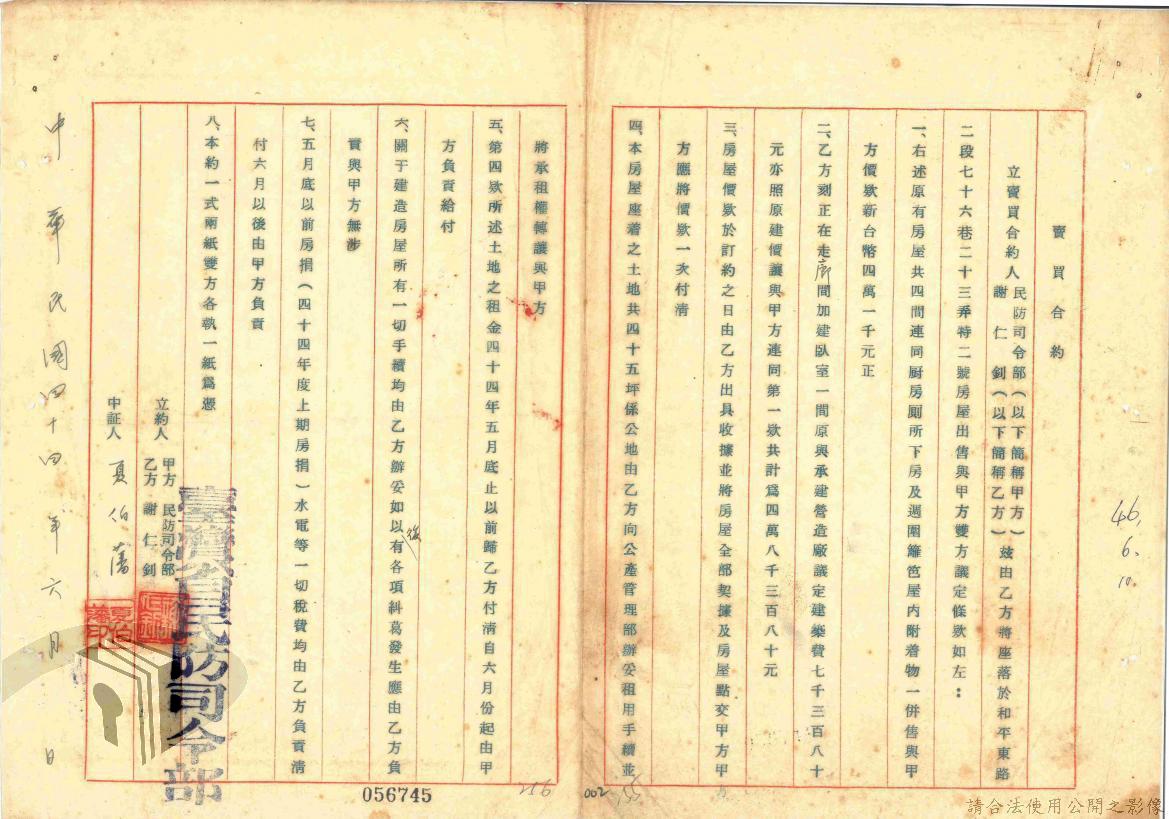 賣買合約
立賣買合約人 民防司令部(以下簡稱甲方) 謝仁釗(以下簡稱乙方) 玆由乙方將座落於和平東路
二段七十六巷二十三弄特二號房屋出售與甲方雙方議定條欵如左:
一、右述原有房屋共四間連同厨房厠所下房及週圍籬笆屋内附着物一併售與甲
方價欵新台幣四萬一千元正
二、乙方刻正在走廊間加建臥室一間原與承建營造廠議定建築費七千三百八十
元亦照原建價讓與甲方連同第一欵共計爲四萬八千三百八十元
三、房屋價欵於訂約之日由乙方出具收據並將房屋全部契據及房屋點交甲方甲
方應將價欵一次付清
四、本房屋座着之土地共四十五坪係公地由乙方向公產管理部辦妥租用手續並
將承租權轉讓與甲方
五、第四欵所述土地之租金四十四年五月底止以前歸乙方付清自六月份起由甲
方負責給付
六、關于建造房屋所有一切手續均由乙方辦妥如以後有各項糾葛發生應由乙方負
責與甲方無涉
七、五月底以前房捐(四十四年度上期房捐)水電等一切稅費均由乙方負責清
付六月以後由甲方負責
八、本約一式兩紙雙方各執一紙爲憑
立約人 甲方 民防司令部
乙方 謝仁釗
臺灣省民防司令部
中証人 夏伯藩
夏伯藩印
中華民國四十四年六月 日
46.
6.
10.
056745
256
002
請合法使用公開之影像